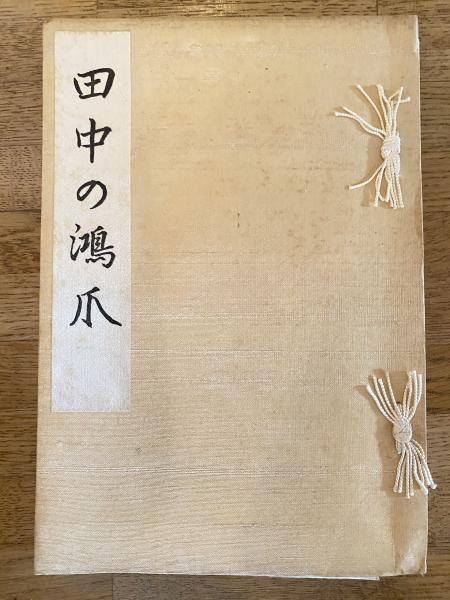 田中の鴻爪